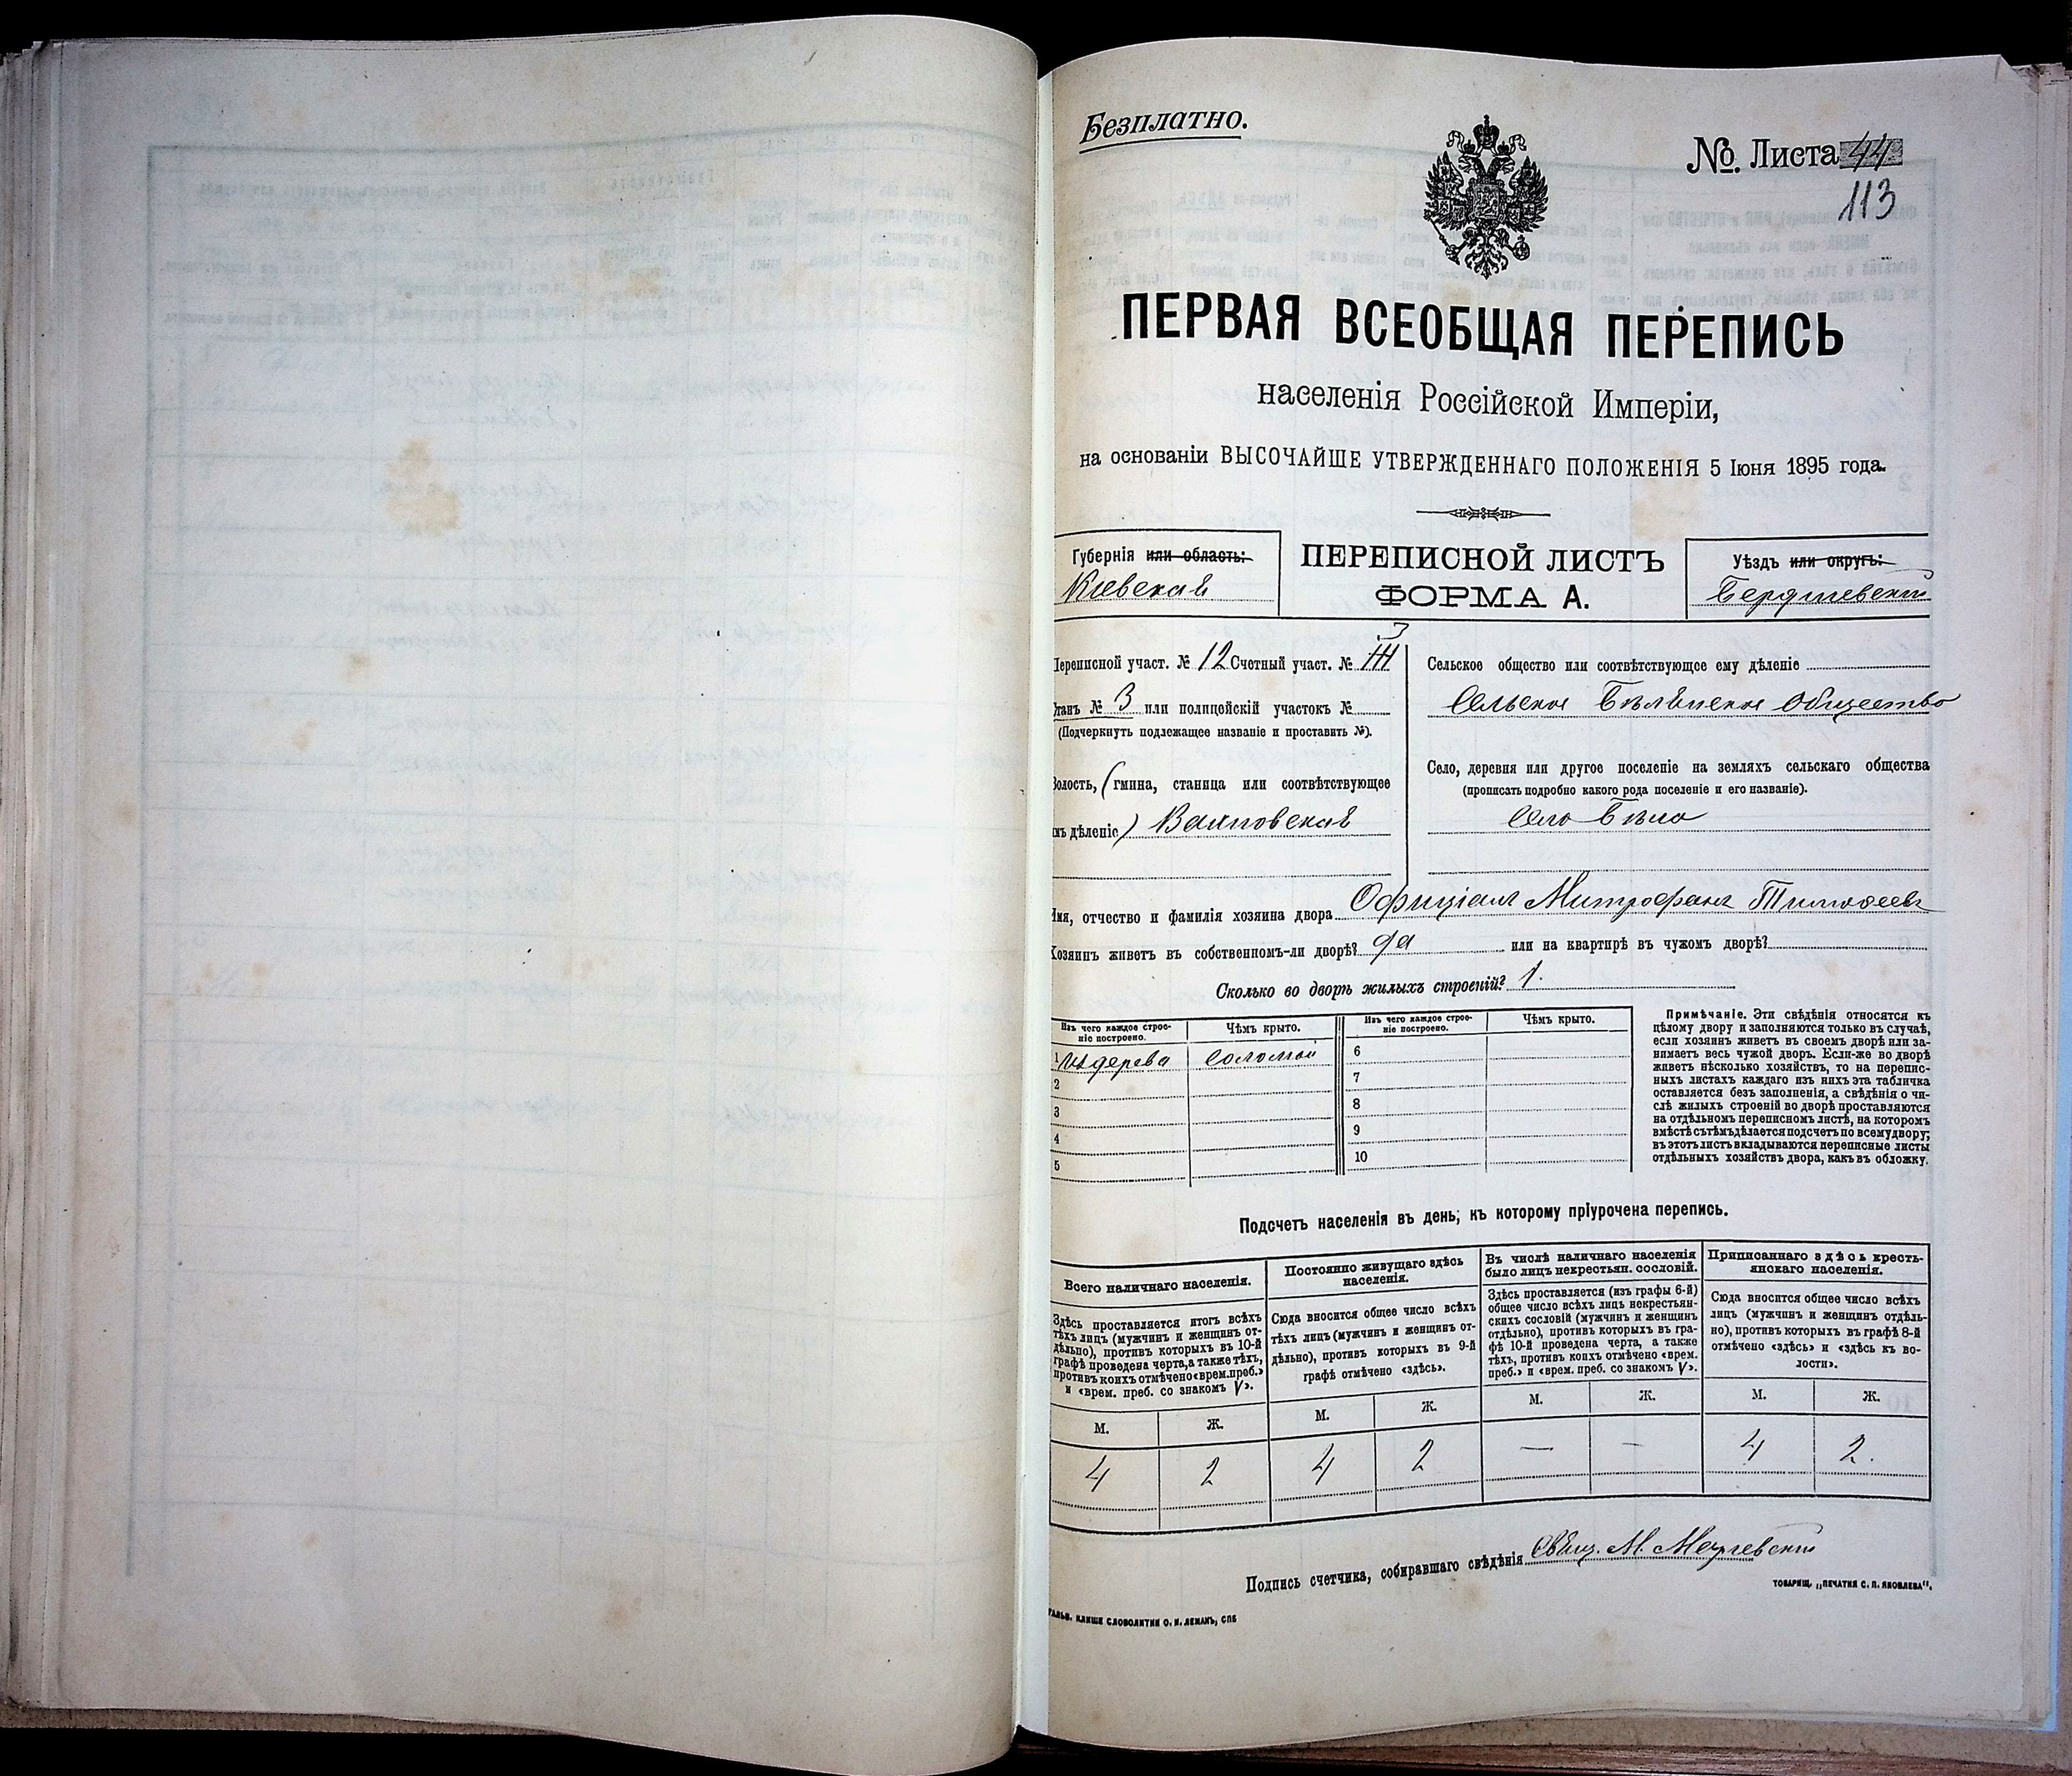 Безплатно.
№ Листа 44
113
ПЕРВАЯ ВСЕОБЩАЯ ПЕРЕПИСЬ
населенія Россійской Имперіи,
на основаніи ВЫСОЧАЙШЕ УТВЕРЖДЕННАГО ПОЛОЖЕНІЯ 5 Іюня 1895 года.
Губернія или область:
Кіевская
ПЕРЕПИСНОЙ ЛИСТЪ
ФОРМА А.
Уѣздъ или округъ:
Бердичевскій
Переписной участ. № 12 Счетный участ. № III
Станъ № 3 или полицейскій участокъ №
(Подчеркнуть подлежащее названіе и проставить №).
Волость, (гмина, станица или соотвѣтствующее
имъ дѣленіе)
Сельское общество или соотвѣтствующее ему дѣленіе
Сельское общество
Село, деревня или другое поселеніе на земляхъ сельскаго общества
(прописать подробно какого рода поселеніе и его названіе).
Село
Имя, отчество и фамилія хозяина двора Офиціалъ Митрофанъ Тимофеевъ
Хозяинъ живетъ въ собственномъ-ли дворѣ? да или на квартирѣ въ чужомъ дворѣ?
Сколько во дворѣ жилыхъ строеній? 1.
Изъ чего каждое строе-
ніе построено.
Чѣмъ крыто.
Изъ чего каждое строе-
ніе построено.
Чѣмъ крыто.
1 Изъ дерева соломой 6
2 7
3 8
4 9
5 10
Примѣчаніе. Эти свѣдѣнія относятся къ
цѣлому двору и заполняются только въ случаѣ,
если хозяинъ живетъ въ своемъ дворѣ или за-
нимаетъ весь чужой дворъ. Если-же во дворѣ
живетъ нѣсколько хозяйствъ, то на перепис-
ныхъ листахъ каждаго изъ нихъ эта табличка
оставляется безъ заполненія, а свѣдѣнія о чи-
слѣ жилыхъ строеній во дворѣ проставляются
на отдѣльномъ переписномъ листѣ, на которомъ
вмѣстѣ съ тѣмъ дѣлается подсчетъ по всему двору;
въ этотъ листъ вкладываются переписные листы
отдѣльныхъ хозяйствъ двора, какъ въ обложку.
Подсчетъ населенія въ день, къ которому пріурочена перепись.
Всего наличнаго населенія.
Здѣсь проставляется итогъ всѣхъ
тѣхъ лицъ (мужчинъ и женщинъ от-
дѣльно), противъ которыхъ въ 10-й
графѣ проведена черта, а также тѣхъ,
противъ коихъ отмѣчено «врем. преб.»
и «врем. преб. со знакомъ V».
Постоянно живущаго здѣсь
населенія.
Сюда вносится общее число всѣхъ
тѣхъ лицъ (мужчинъ и женщинъ от-
дѣльно), противъ которыхъ въ 9-й
графѣ отмѣчено «здѣсь».
Въ числѣ наличнаго населенія
было лицъ некрестьян. сословій.
Здѣсь проставляется (изъ графы 6-й)
общее число всѣхъ лицъ некрестьян-
скихъ сословій (мужчинъ и женщинъ
отдѣльно), противъ которыхъ въ гра-
фѣ 10-й проведена черта, а также
тѣхъ, противъ коихъ отмѣчено «врем.
преб.» и «врем. преб. со знакомъ V».
Приписаннаго здѣсь кресть-
янскаго населенія.
Сюда вносится общее число всѣхъ
лицъ (мужчинъ и женщинъ отдѣль-
но), противъ которыхъ въ графѣ 8-й
отмѣчено «здѣсь» и «здѣсь къ во-
лости».
М. Ж. М. Ж. М. Ж. М. Ж.
4 2 4 2 — — 4 2.
Подпись счетчика, собиравшаго свѣдѣнія Свящ. М.
ТОВАРИЩ. „ПЕЧАТНЯ С. П. ЯКОВЛЕВА".
ГАЛЬВ. КЛИШЕ СЛОВОЛИТНИ О. И. ЛЕМАНЪ, СПБ